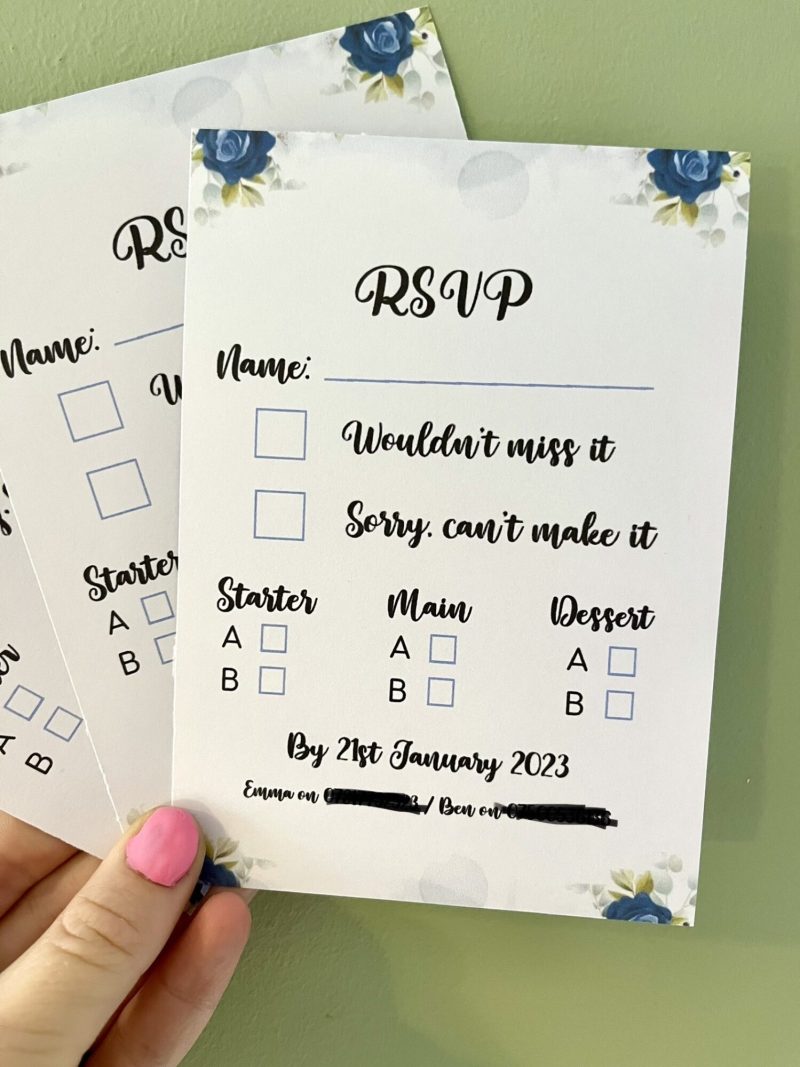 RSVP
Name:
Wouldn't miss it
Sorry. can't make it
Starter Main Dessert
A A A
B B B
By 21st January 2023
Emma on / Ben on
RS
Name:
W
Starter
A
B
A
B